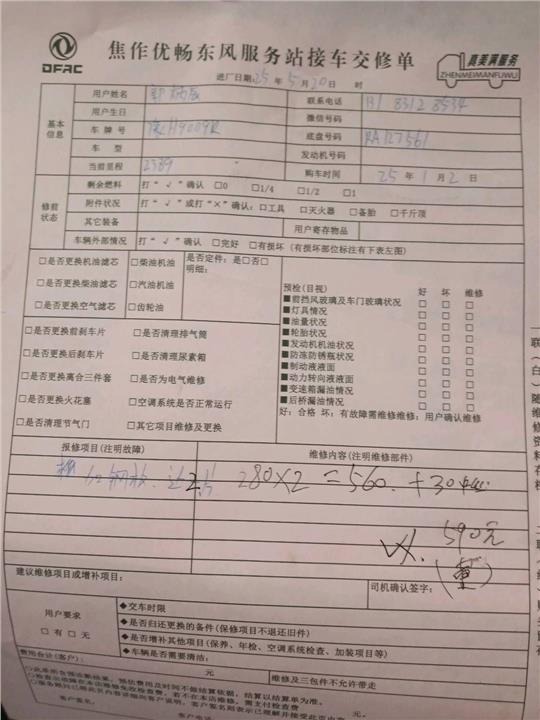 DFAC
焦作优畅东风服务站接车交修单
真美满服务
ZHENMEIMANFUWU
进厂日期:25 年 5 月 20 日 时
基本信息
用户姓名 联系电话 131 8312 8534
用户生日 微信号码
车 牌 号 底盘号码 RA127561
车 型 发动机号码
当前里程 2389 购车时间 25 年 1 月 2 日
修前状态
剩余燃料 打“√”确认 □0 □1/4 □1/2 □1
附件状况 打“√”或打“×”确认:□工具 □灭火器 □备胎 □千斤顶
其它装备 用户寄存物品
车辆外部情况 打“√”确认 □完好 □有损坏(有损坏部位标注有下表左图)
□是否更换机油滤芯 □柴油机油 是否定件:是□否□
明细:
□是否更换柴油滤芯 □汽油机油
□是否更换空气滤芯 □齿轮油
预检(目视) 好 坏 维修
■前挡风玻璃及车门玻璃状况 □ □ □
■灯具情况 □ □ □
■油量状况 □ □ □
■轮胎状况 □ □ □
■发动机机油状况 □ □ □
■防冻防锈瓶状况 □ □ □
■制动液液面 □ □ □
■动力转向液液面 □ □ □
■变速箱漏油情况 □ □ □
■后桥漏油情况 □ □ □
好:合格 坏:有故障需维修维修:用户确认维修
□是否更换前刹车片 □是否清理排气筒
□是否更换后刹车片 □是否清理尿素箱
□是否更换离合三件套 □是否为电气维修
□是否更换火花塞 □空调系统是否正常运行
□是否清理节气门 □其它项目维修及更换
报修项目(注明故障) 维修内容(注明维修部件)
钢板 2片 280×2=560.+30
590元
建议维修项目或增补项目: 司机确认签字:
用户要求
□有 □无
◆交车时限
◆是否归还更换的备件(保修项目不退还旧件)
◆是否增补其他项目(保养、年检、空调系统检查、加装项目等)
◆车辆是否需要清洁:
费用合计(客户): 元 维修及三包件不允许带走
客户签名: 客户电话